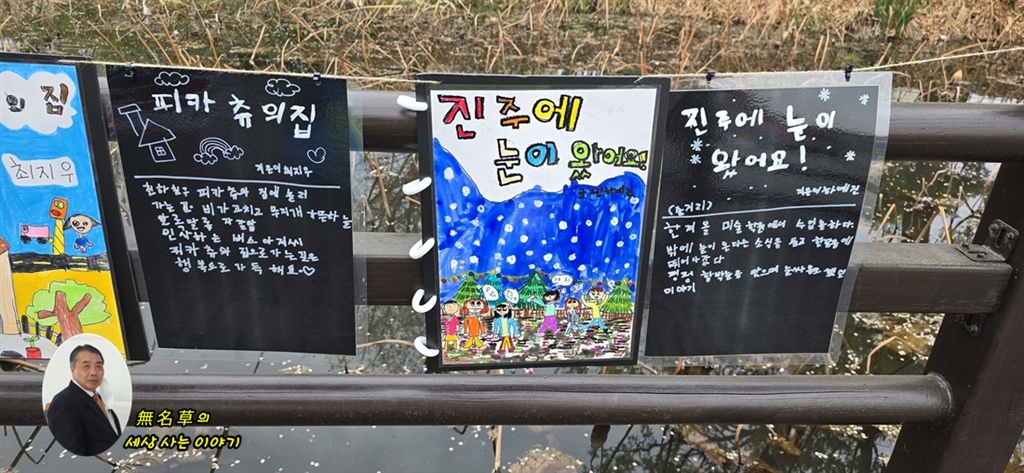 의 집
최지우
피카 츄의집
지은이 최지우
친한친구 피카 츄의 집에 놀러
가는 길 비가 그치고 무지개가 뜬 하늘
인사하는 버스 아저씨
피카 츄의 집으로 가는 길은
행복으로 가득해요♡
진주에
눈이 왔어요!
진주에 눈이
왔어요!
지은이
(줄거리)
한겨울 미술학원에서 수업중이다.
밖에 눈이 온다는 소식을 듣고 학원밖에
뛰어나갔다
함박눈을 맞으며 눈싸움도 했던
이야기
無名草의
세상 사는 이야기